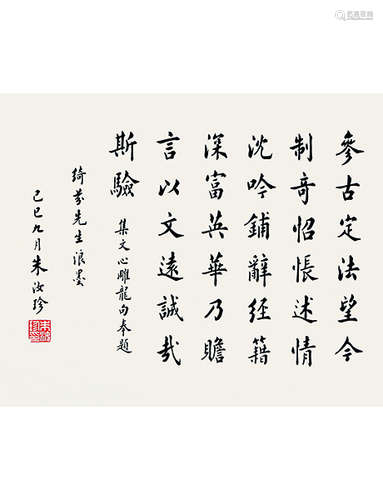 參古定法望今
制奇怊悵述情
沈吟鋪辭經籍
深富英華乃贍
言以文遠誠哉
斯驗
集文心雕龍句奉題
綺芬先生浪墨
己巳九月朱汝珍